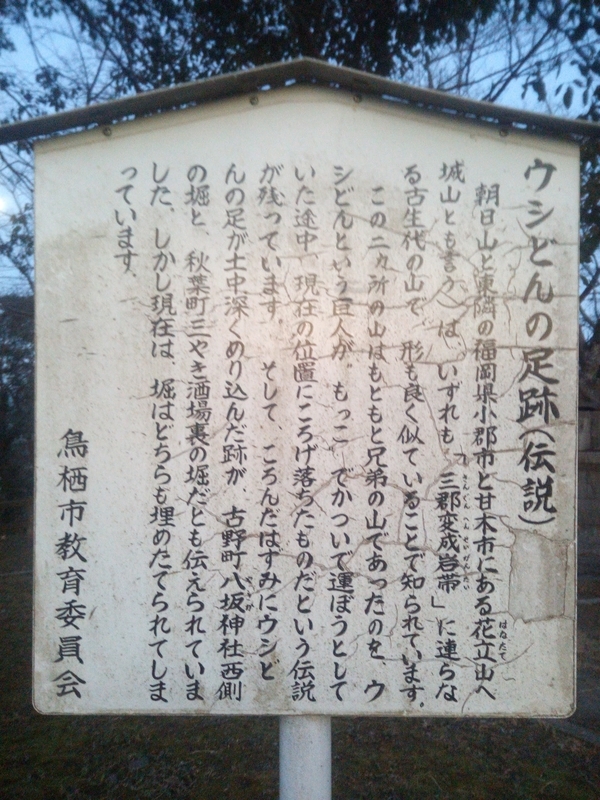 ウシどんの足跡(伝説)
朝日山と東隣の福岡県小郡市と甘木市にある花立山へ
城山とも言う〉は、いずれも「三郡変成岩帯」に連らな
る古生代の山で、形も良く似ていることで知られています。
この二ヵ所の山はもともと兄弟の山であったのを、ウ
シどんという巨人が〝もっこ〟でかついで運ぼうとして
いた途中、現在の位置にころげ落ちたものだという伝説
が残っています。そして、ころんだはずみにウシど
んの足が土中深くめり込んだ跡が、古野町八坂神社西側
の堀と、秋葉町三やき酒場裏の堀だとも伝えられていま
した、しかし現在は、堀はどちらも埋めたてられてしま
っています。
鳥栖市教育委員会